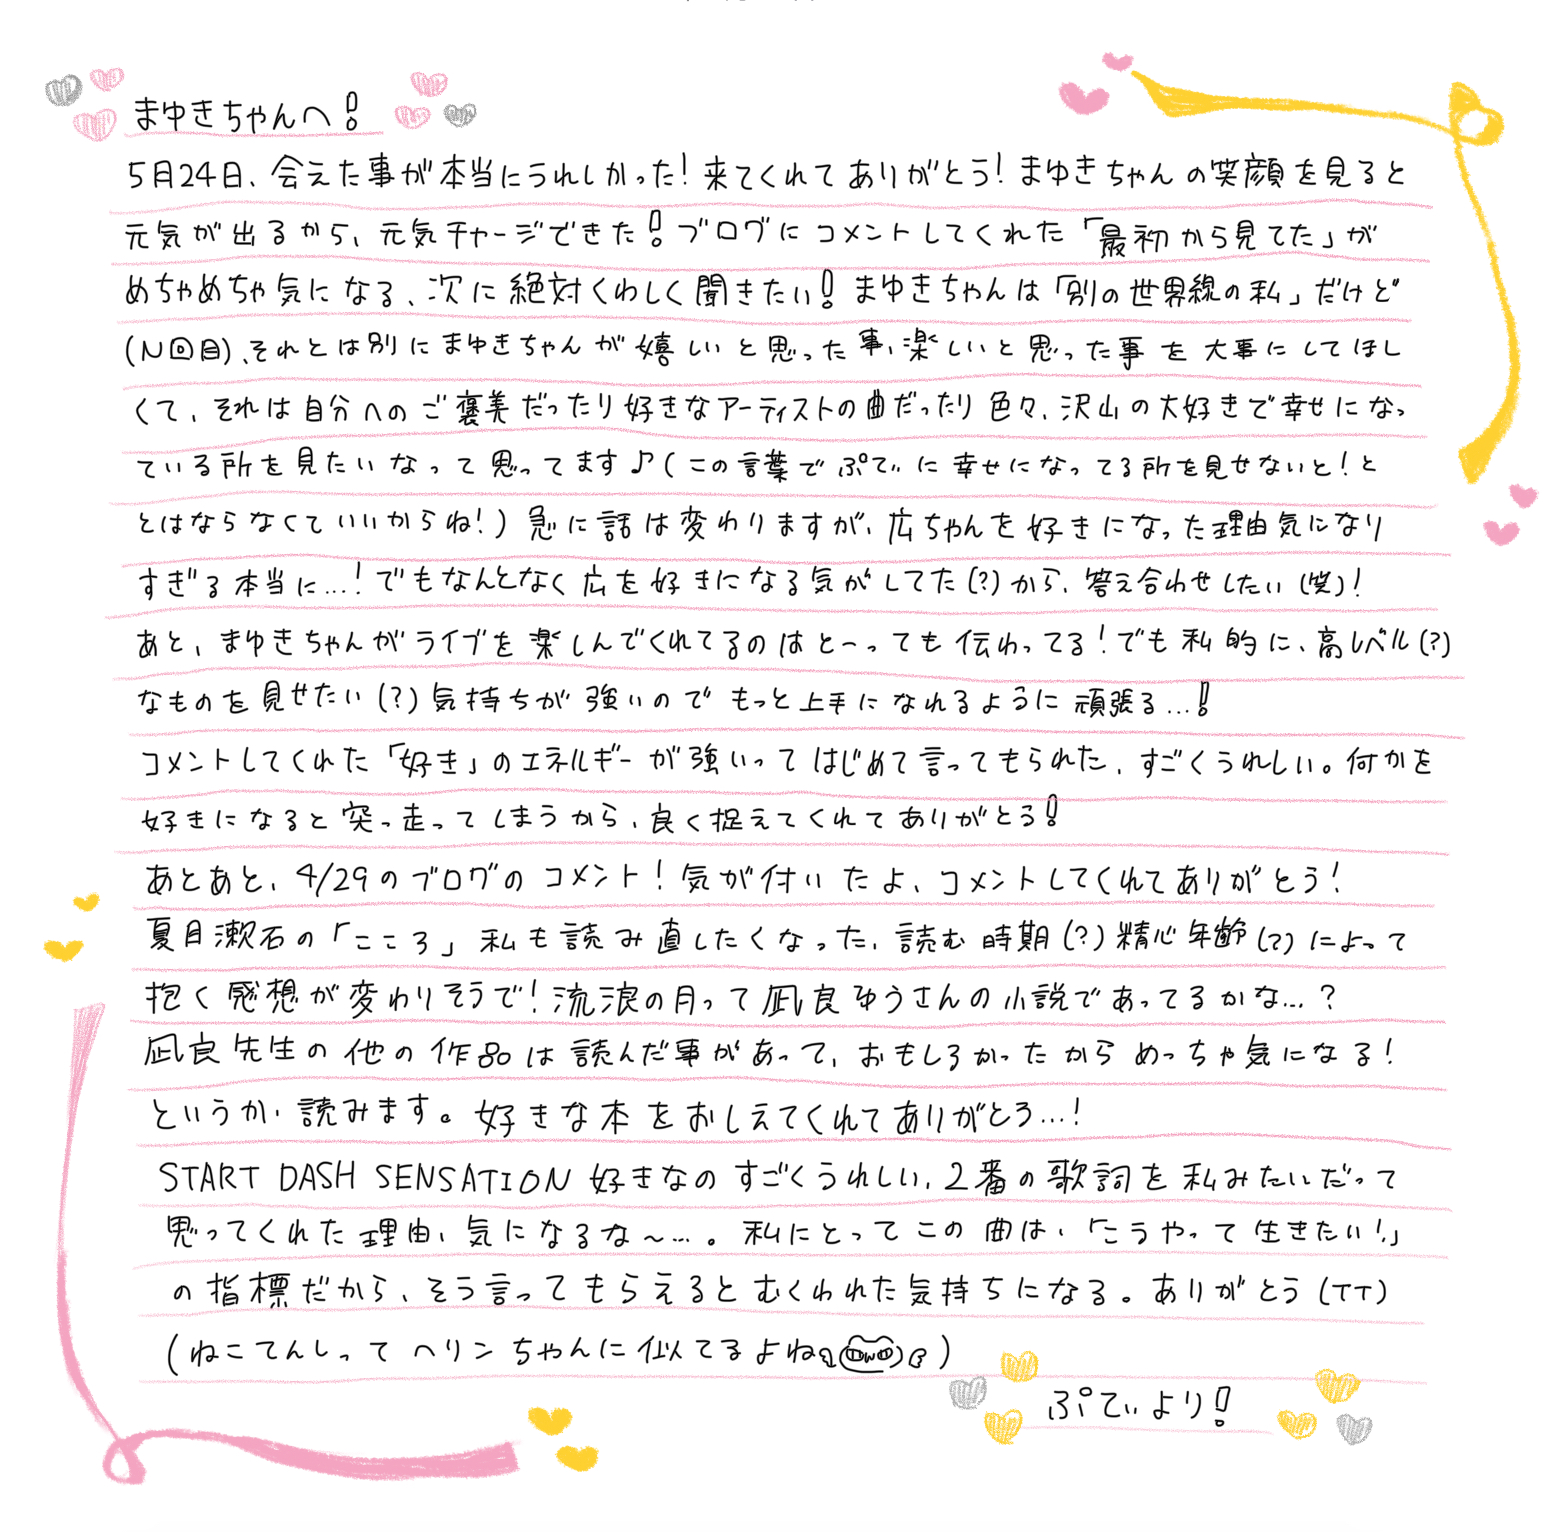 まゆきちゃんへ!
5月24日、会えた事が本当にうれしかった!来てくれてありがとう!まゆきちゃんの笑顔を見ると
元気が出るから、元気チャージできた!ブログにコメントしてくれた「最初から見てた」が
めちゃめちゃ気になる、次に絶対くわしく聞きたい!まゆきちゃんは「別の世界線の私」だけど
(N回目)、それとは別にまゆきちゃんが嬉しいと思った事、楽しいと思った事を大事にしてほし
くて、それは自分へのご褒美だったり好きなアーティストの曲だったり色々、沢山の大好きで幸せになっ
ている所を見たいなって思ってます♪(この言葉でぷてぃに幸せになってる所を見せないと!と
とはならなくていいからね!)急に話は変わりますが、広ちゃんを好きになった理由気になり
すぎる本当に…!でもなんとなく広を好きになる気がしてた(?)から、答え合わせしたい(笑)!
あと、まゆきちゃんがライブを楽しんでくれてるのはとーっても伝わってる!でも私的に、高レベル(?)
なものを見せたい(?)気持ちが強いのでもっと上手になれるように頑張る…!
コメントしてくれた「好き」のエネルギーが強いってはじめて言ってもらられた、すごくうれしい。何かを
好きになると突っ走ってしまうから、良く捉えてくれてありがとう!
あとあと、4/29のブログのコメント!気が付いたよ、コメントしてくれてありがとう!
夏目漱石の「こころ」私も読み直したくなった、読む時期(?)精神年齢(?)によって
抱く感想が変わりそうで!流浪の月って凪良ゆうさんの小説であってるかな…?
凪良先生の他の作品は読んだ事があって、おもしろかったからめっちゃ気になる!
というか、読みます。好きな本をおしえてくれてありがとう…!
START DASH SENSATION 好きなのすごくうれしい、2番の歌詞を私みたいだって
思ってくれた理由、気になるな〜…。私にとってこの曲は、「こうやって生きたい!」
の指標だから、そう言ってもらえるとむくわれた気持ちになる。ありがとう(TT)
(ねこてんしってヘリンちゃんに似てるよね)
ぷてぃより!